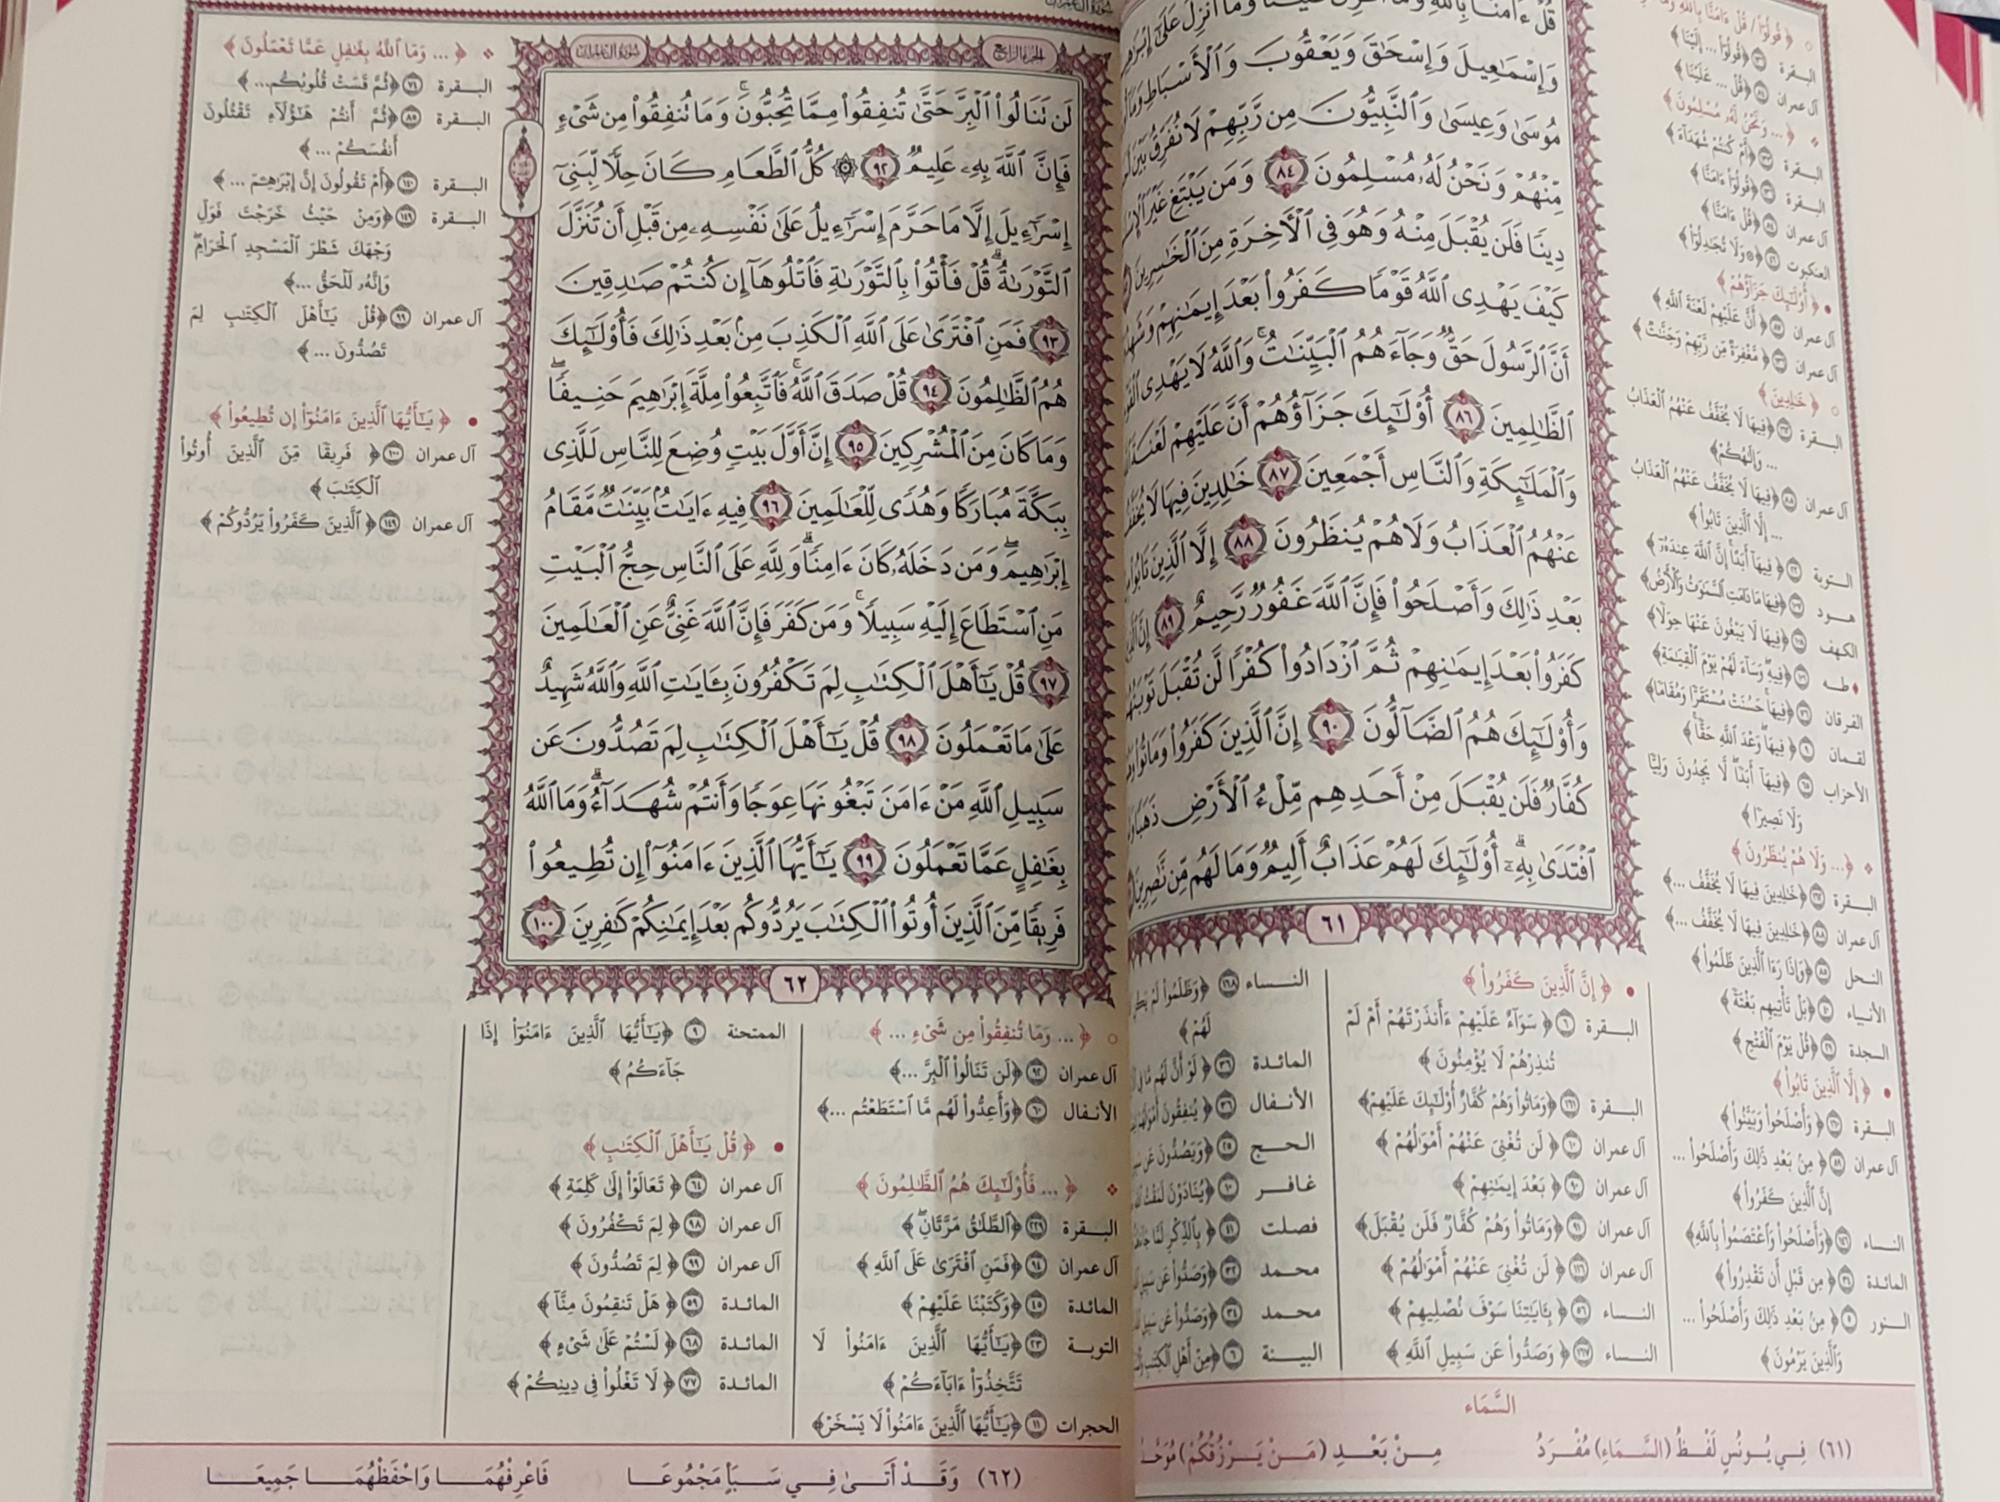 سورة آل عمران
قُلْ ءَامَنَّا بِٱللَّهِ وَمَآ أُنزِلَ عَلَيْنَا وَمَآ أُنزِلَ عَلَىٰٓ
وَإِسْمَٰعِيلَ وَإِسْحَٰقَ وَيَعْقُوبَ وَٱلْأَسْبَاطِ
مُوسَىٰ وَعِيسَىٰ وَٱلنَّبِيُّونَ مِن رَّبِّهِمْ لَا نُفَرِّقُ بَيْنَ
مِّنْهُمْ وَنَحْنُ لَهُۥ مُسْلِمُونَ ٨٤ وَمَن يَبْتَغِ غَيْرَ
دِينًا فَلَن يُقْبَلَ مِنْهُ وَهُوَ فِى ٱلْءَاخِرَةِ مِنَ ٱلْخَٰسِرِينَ
كَيْفَ يَهْدِى ٱللَّهُ قَوْمًا كَفَرُوا۟ بَعْدَ إِيمَٰنِهِمْ
أَنَّ ٱلرَّسُولَ حَقٌّ وَجَآءَهُمُ ٱلْبَيِّنَٰتُ ۚ وَٱللَّهُ لَا يَهْدِى
ٱلظَّٰلِمِينَ ٨٦ أُو۟لَٰٓئِكَ جَزَآؤُهُمْ أَنَّ عَلَيْهِمْ
وَٱلْمَلَٰٓئِكَةِ وَٱلنَّاسِ أَجْمَعِينَ ٨٧ خَٰلِدِينَ فِيهَا لَا
عَنْهُمُ ٱلْعَذَابُ وَلَا هُمْ يُنظَرُونَ ٨٨ إِلَّا ٱلَّذِينَ تَابُوا۟
بَعْدِ ذَٰلِكَ وَأَصْلَحُوا۟ فَإِنَّ ٱللَّهَ غَفُورٌ رَّحِيمٌ ٨٩ إِنَّ
كَفَرُوا۟ بَعْدَ إِيمَٰنِهِمْ ثُمَّ ٱزْدَادُوا۟ كُفْرًا لَّن تُقْبَلَ
وَأُو۟لَٰٓئِكَ هُمُ ٱلضَّآلُّونَ ٩٠ إِنَّ ٱلَّذِينَ كَفَرُوا۟ وَمَاتُوا۟
كُفَّارٌ فَلَن يُقْبَلَ مِنْ أَحَدِهِم مِّلْءُ ٱلْأَرْضِ ذَهَبًا
ٱفْتَدَىٰ بِهِۦٓ ۗ أُو۟لَٰٓئِكَ لَهُمْ عَذَابٌ أَلِيمٌ وَمَا لَهُم مِّن نَّٰصِرِينَ
٦١
﴿قُولُوٓا۟ / قُلْ ءَامَنَّا بِٱللَّهِ
البقرة ﴿قُولُوٓا۟ ... إِلَيْنَا﴾
آل عمران ﴿قُلْ ... عَلَيْنَا﴾
﴿... وَنَحْنُ لَهُۥ مُسْلِمُونَ﴾
البقرة ﴿أَمْ كُنتُمْ شُهَدَآءَ﴾
البقرة ﴿قُولُوٓا۟ ءَامَنَّا﴾
آل عمران ﴿قُلْ ءَامَنَّا﴾
العنكبوت ﴿وَلَا تُجَٰدِلُوٓا۟﴾
﴿أُو۟لَٰٓئِكَ جَزَآؤُهُمْ﴾
آل عمران ﴿أَنَّ عَلَيْهِمْ لَعْنَةَ ٱللَّهِ﴾
آل عمران ﴿مَّغْفِرَةٌ مِّن رَّبِّهِمْ وَجَنَّٰتٌ﴾
﴿خَٰلِدِينَ﴾
البقرة ﴿فِيهَا لَا يُخَفَّفُ عَنْهُمُ ٱلْعَذَابُ
... وَإِلَٰهُكُمْ﴾
آل عمران ٨٨ ﴿فِيهَا لَا يُخَفَّفُ عَنْهُمُ ٱلْعَذَابُ
... إِلَّا ٱلَّذِينَ تَابُوا۟﴾
التوبة ﴿فِيهَآ أَبَدًا إِنَّ ٱللَّهَ عِندَهُۥٓ﴾
هود ﴿فِيهَا مَا دَامَتِ ٱلسَّمَٰوَٰتُ وَٱلْأَرْضُ﴾
الكهف ﴿فِيهَا لَا يَبْغُونَ عَنْهَا حِوَلًا﴾
طه ﴿فِيهِ وَسَآءَ لَهُمْ يَوْمَ ٱلْقِيَٰمَةِ﴾
الفرقان ﴿فِيهَا حَسُنَتْ مُسْتَقَرًّا وَمُقَامًا﴾
لقمان ٩ ﴿فِيهَا وَعْدَ ٱللَّهِ حَقًّا﴾
الأحزاب ٦٥ ﴿فِيهَآ أَبَدًا لَّا يَجِدُونَ وَلِيًّا
وَلَا نَصِيرًا﴾
﴿... وَلَا هُمْ يُنظَرُونَ﴾
البقرة ﴿خَٰلِدِينَ فِيهَا لَا يُخَفَّفُ ...﴾
آل عمران ٨٨ ﴿خَٰلِدِينَ فِيهَا لَا يُخَفَّفُ ...﴾
النحل ﴿وَإِذَا رَءَا ٱلَّذِينَ ظَلَمُوا۟﴾
الأنبياء ﴿بَلْ تَأْتِيهِم بَغْتَةً﴾
السجدة ﴿قُلْ يَوْمَ ٱلْفَتْحِ﴾
﴿إِلَّا ٱلَّذِينَ تَابُوا۟﴾
البقرة ﴿وَأَصْلَحُوا۟ وَبَيَّنُوا۟﴾
آل عمران ٨٩ ﴿مِنۢ بَعْدِ ذَٰلِكَ وَأَصْلَحُوا۟ ...
إِنَّ ٱلَّذِينَ كَفَرُوا۟﴾
النساء ﴿وَأَصْلَحُوا۟ وَٱعْتَصَمُوا۟ بِٱللَّهِ﴾
المائدة ﴿مِن قَبْلِ أَن تَقْدِرُوا۟﴾
النور ﴿مِنۢ بَعْدِ ذَٰلِكَ وَأَصْلَحُوا۟ ...
وَٱلَّذِينَ يَرْمُونَ﴾
﴿إِنَّ ٱلَّذِينَ كَفَرُوا۟﴾
البقرة ٦ ﴿سَوَآءٌ عَلَيْهِمْ ءَأَنذَرْتَهُمْ أَمْ لَمْ
تُنذِرْهُمْ لَا يُؤْمِنُونَ﴾
البقرة ١٦١ ﴿وَمَاتُوا۟ وَهُمْ كُفَّارٌ أُو۟لَٰٓئِكَ عَلَيْهِمْ﴾
آل عمران ١٠ ﴿لَن تُغْنِىَ عَنْهُمْ أَمْوَٰلُهُمْ﴾
آل عمران ٩٠ ﴿بَعْدَ إِيمَٰنِهِمْ﴾
آل عمران ٩١ ﴿وَمَاتُوا۟ وَهُمْ كُفَّارٌ فَلَن يُقْبَلَ﴾
آل عمران ١١٦ ﴿لَن تُغْنِىَ عَنْهُمْ أَمْوَٰلُهُمْ﴾
النساء ٥٦ ﴿بِـَٔايَٰتِنَا سَوْفَ نُصْلِيهِمْ﴾
النساء ١٦٧ ﴿وَصَدُّوا۟ عَن سَبِيلِ ٱللَّهِ﴾
النساء ١٦٨ ﴿وَظَلَمُوا۟ لَمْ
لَهُمْ﴾
المائدة ٣٦ ﴿لَوْ أَنَّ لَهُم مَّا فِى
الأنفال ٣٦ ﴿يُنفِقُونَ أَمْوَٰلَهُمْ
الحج ٢٥ ﴿وَيَصُدُّونَ عَن
غافر ١٠ ﴿يُنَادَوْنَ لَمَقْتُ
فصلت ٤١ ﴿بِٱلذِّكْرِ لَمَّا
محمد ٣٢ ﴿وَصَدُّوا۟ عَن سَبِيلِ
محمد ٣٤ ﴿وَصَدُّوا۟ عَن سَبِيلِ
البينة ٦ ﴿مِنْ أَهْلِ ٱلْكِتَٰبِ
السَّمَاء
(٦١) فِي يُونُسٍ لَفْظُ (السَّمَاءِ) مُفْرَدُ مِنْ بَعْدِ (مَنْ يَرْزُقُكُمْ)
الجزء الرابع
سورة آل عمران
لَن تَنَالُوا۟ ٱلْبِرَّ حَتَّىٰ تُنفِقُوا۟ مِمَّا تُحِبُّونَ ۚ وَمَا تُنفِقُوا۟ مِن شَىْءٍ
فَإِنَّ ٱللَّهَ بِهِۦ عَلِيمٌ ٩٢ ۞ كُلُّ ٱلطَّعَامِ كَانَ حِلًّا لِّبَنِىٓ
إِسْرَٰٓءِيلَ إِلَّا مَا حَرَّمَ إِسْرَٰٓءِيلُ عَلَىٰ نَفْسِهِۦ مِن قَبْلِ أَن تُنَزَّلَ
ٱلتَّوْرَىٰةُ ۗ قُلْ فَأْتُوا۟ بِٱلتَّوْرَىٰةِ فَٱتْلُوهَآ إِن كُنتُمْ صَٰدِقِينَ
٩٣ فَمَنِ ٱفْتَرَىٰ عَلَى ٱللَّهِ ٱلْكَذِبَ مِنۢ بَعْدِ ذَٰلِكَ فَأُو۟لَٰٓئِكَ
هُمُ ٱلظَّٰلِمُونَ ٩٤ قُلْ صَدَقَ ٱللَّهُ ۗ فَٱتَّبِعُوا۟ مِلَّةَ إِبْرَٰهِيمَ حَنِيفًا ۖ
وَمَا كَانَ مِنَ ٱلْمُشْرِكِينَ ٩٥ إِنَّ أَوَّلَ بَيْتٍ وُضِعَ لِلنَّاسِ لَلَّذِى
بِبَكَّةَ مُبَارَكًا وَهُدًى لِّلْعَٰلَمِينَ ٩٦ فِيهِ ءَايَٰتٌۢ بَيِّنَٰتٌ مَّقَامُ
إِبْرَٰهِيمَ ۖ وَمَن دَخَلَهُۥ كَانَ ءَامِنًا ۗ وَلِلَّهِ عَلَى ٱلنَّاسِ حِجُّ ٱلْبَيْتِ
مَنِ ٱسْتَطَاعَ إِلَيْهِ سَبِيلًا ۚ وَمَن كَفَرَ فَإِنَّ ٱللَّهَ غَنِىٌّ عَنِ ٱلْعَٰلَمِينَ
٩٧ قُلْ يَٰٓأَهْلَ ٱلْكِتَٰبِ لِمَ تَكْفُرُونَ بِـَٔايَٰتِ ٱللَّهِ وَٱللَّهُ شَهِيدٌ
عَلَىٰ مَا تَعْمَلُونَ ٩٨ قُلْ يَٰٓأَهْلَ ٱلْكِتَٰبِ لِمَ تَصُدُّونَ عَن
سَبِيلِ ٱللَّهِ مَنْ ءَامَنَ تَبْغُونَهَا عِوَجًا وَأَنتُمْ شُهَدَآءُ ۗ وَمَا ٱللَّهُ
بِغَٰفِلٍ عَمَّا تَعْمَلُونَ ٩٩ يَٰٓأَيُّهَا ٱلَّذِينَ ءَامَنُوٓا۟ إِن تُطِيعُوا۟
فَرِيقًا مِّنَ ٱلَّذِينَ أُوتُوا۟ ٱلْكِتَٰبَ يَرُدُّوكُم بَعْدَ إِيمَٰنِكُمْ كَٰفِرِينَ ١٠٠
٦٢
﴿... وَمَا ٱللَّهُ بِغَٰفِلٍ عَمَّا تَعْمَلُونَ﴾
البقرة ٧٤ ﴿ثُمَّ قَسَتْ قُلُوبُكُم...﴾
البقرة ٨٥ ﴿ثُمَّ أَنتُمْ هَٰٓؤُلَآءِ تَقْتُلُونَ
أَنفُسَكُمْ ...﴾
البقرة ١٤٠ ﴿أَمْ تَقُولُونَ إِنَّ إِبْرَٰهِـۧمَ ...﴾
البقرة ١٤٩ ﴿وَمِنْ حَيْثُ خَرَجْتَ فَوَلِّ
وَجْهَكَ شَطْرَ ٱلْمَسْجِدِ ٱلْحَرَامِ ۖ
وَإِنَّهُۥ لَلْحَقُّ ...﴾
آل عمران ٩٩ ﴿قُلْ يَٰٓأَهْلَ ٱلْكِتَٰبِ لِمَ
تَصُدُّونَ ...﴾
﴿يَٰٓأَيُّهَا ٱلَّذِينَ ءَامَنُوٓا۟ إِن تُطِيعُوا۟﴾
آل عمران ١٠٠ ﴿فَرِيقًا مِّنَ ٱلَّذِينَ أُوتُوا۟
ٱلْكِتَٰبَ﴾
آل عمران ١٤٩ ﴿ٱلَّذِينَ كَفَرُوا۟ يَرُدُّوكُمْ﴾
﴿... وَمَا تُنفِقُوا۟ مِن شَىْءٍ ...﴾
آل عمران ٩٢ ﴿لَن تَنَالُوا۟ ٱلْبِرَّ ...﴾
الأنفال ٦٠ ﴿وَأَعِدُّوا۟ لَهُم مَّا ٱسْتَطَعْتُم ...﴾
﴿... فَأُو۟لَٰٓئِكَ هُمُ ٱلظَّٰلِمُونَ﴾
البقرة ٢٢٩ ﴿ٱلطَّلَٰقُ مَرَّتَانِ﴾
آل عمران ٩٤ ﴿فَمَنِ ٱفْتَرَىٰ عَلَى ٱللَّهِ﴾
المائدة ٤٥ ﴿وَكَتَبْنَا عَلَيْهِمْ﴾
التوبة ٢٣ ﴿يَٰٓأَيُّهَا ٱلَّذِينَ ءَامَنُوا۟ لَا
تَتَّخِذُوٓا۟ ءَابَآءَكُمْ﴾
الحجرات ١١ ﴿يَٰٓأَيُّهَا ٱلَّذِينَ ءَامَنُوا۟ لَا يَسْخَرْ﴾
الممتحنة ٩ ﴿يَٰٓأَيُّهَا ٱلَّذِينَ ءَامَنُوٓا۟ إِذَا
جَآءَكُمُ﴾
﴿قُلْ يَٰٓأَهْلَ ٱلْكِتَٰبِ﴾
آل عمران ٦٤ ﴿تَعَالَوْا۟ إِلَىٰ كَلِمَةٍ﴾
آل عمران ٩٨ ﴿لِمَ تَكْفُرُونَ﴾
آل عمران ٩٩ ﴿لِمَ تَصُدُّونَ﴾
المائدة ٥٩ ﴿هَلْ تَنقِمُونَ مِنَّآ﴾
المائدة ٦٨ ﴿لَسْتُمْ عَلَىٰ شَىْءٍ﴾
المائدة ٧٧ ﴿لَا تَغْلُوا۟ فِى دِينِكُمْ﴾
(٦٢) وَقَدْ أَتَىٰ فِي سَبَأٍ مَجْمُوعَا فَاعْرِفْهُمَا وَاحْفَظْهُمَا جَمِيعَا